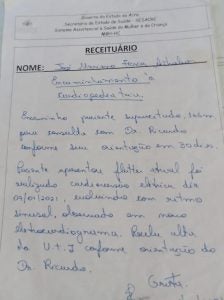 Governo do Estado do Acre
Secretaria de Estado de Saúde - SESACRE
Sistema Assistencial à Saúde da Mulher e da Criança
RECEITUÁRIO
NOME: José
Encaminhamento à
cardiopediatria
Encaminho paciente supracitado, retorno
para consulta com Dr. Ricardo
conforme sua orientação em 30 dias.
Paciente apresentou flutter atrial foi
realizado cardioversão elétrica dia
09/01/2021, evoluindo com ritmo
sinusal, observado em novo
eletrocardiograma. Recebe alta
da U.T.I conforme orientação do
Dr. Ricardo.